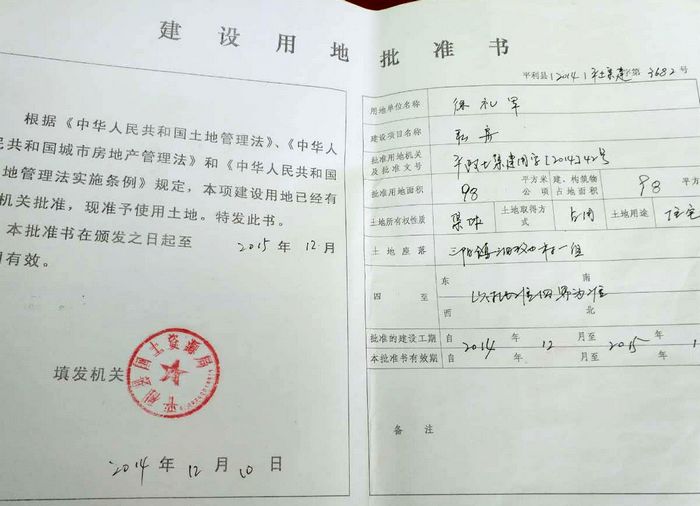 建设用地批准书
根据《中华人民共和国土地管理法》、《中华人
民共和国城市房地产管理法》和《中华人民共和国
地管理法实施条例》规定，本项建设用地已经有
机关批准，现准予使用土地。特发此书。
本批准书在颁发之日起至 2015 年 12 月
有效。
平利县国土资源局
填发机关
2014 年 12 月 10 日
平利县 [2014] 平土集建字第 3682 号
用地单位名称 徐礼军
建设项目名称 私房
批准用地机关及批准文号 平政土集建用字[2014]42号
批准用地面积 98 平方米 公顷 建、构筑物占地面积 98 平方
土地所有权性质 集体 土地取得方式 占用 土地用途 住宅
土地座落 三阳镇 村一组
四至 东 南 西 北 以批准四界为准
批准的建设工期 自 2014 年 12 月至 2015 年 1
本批准书有效期 自 年 月至 年
备注